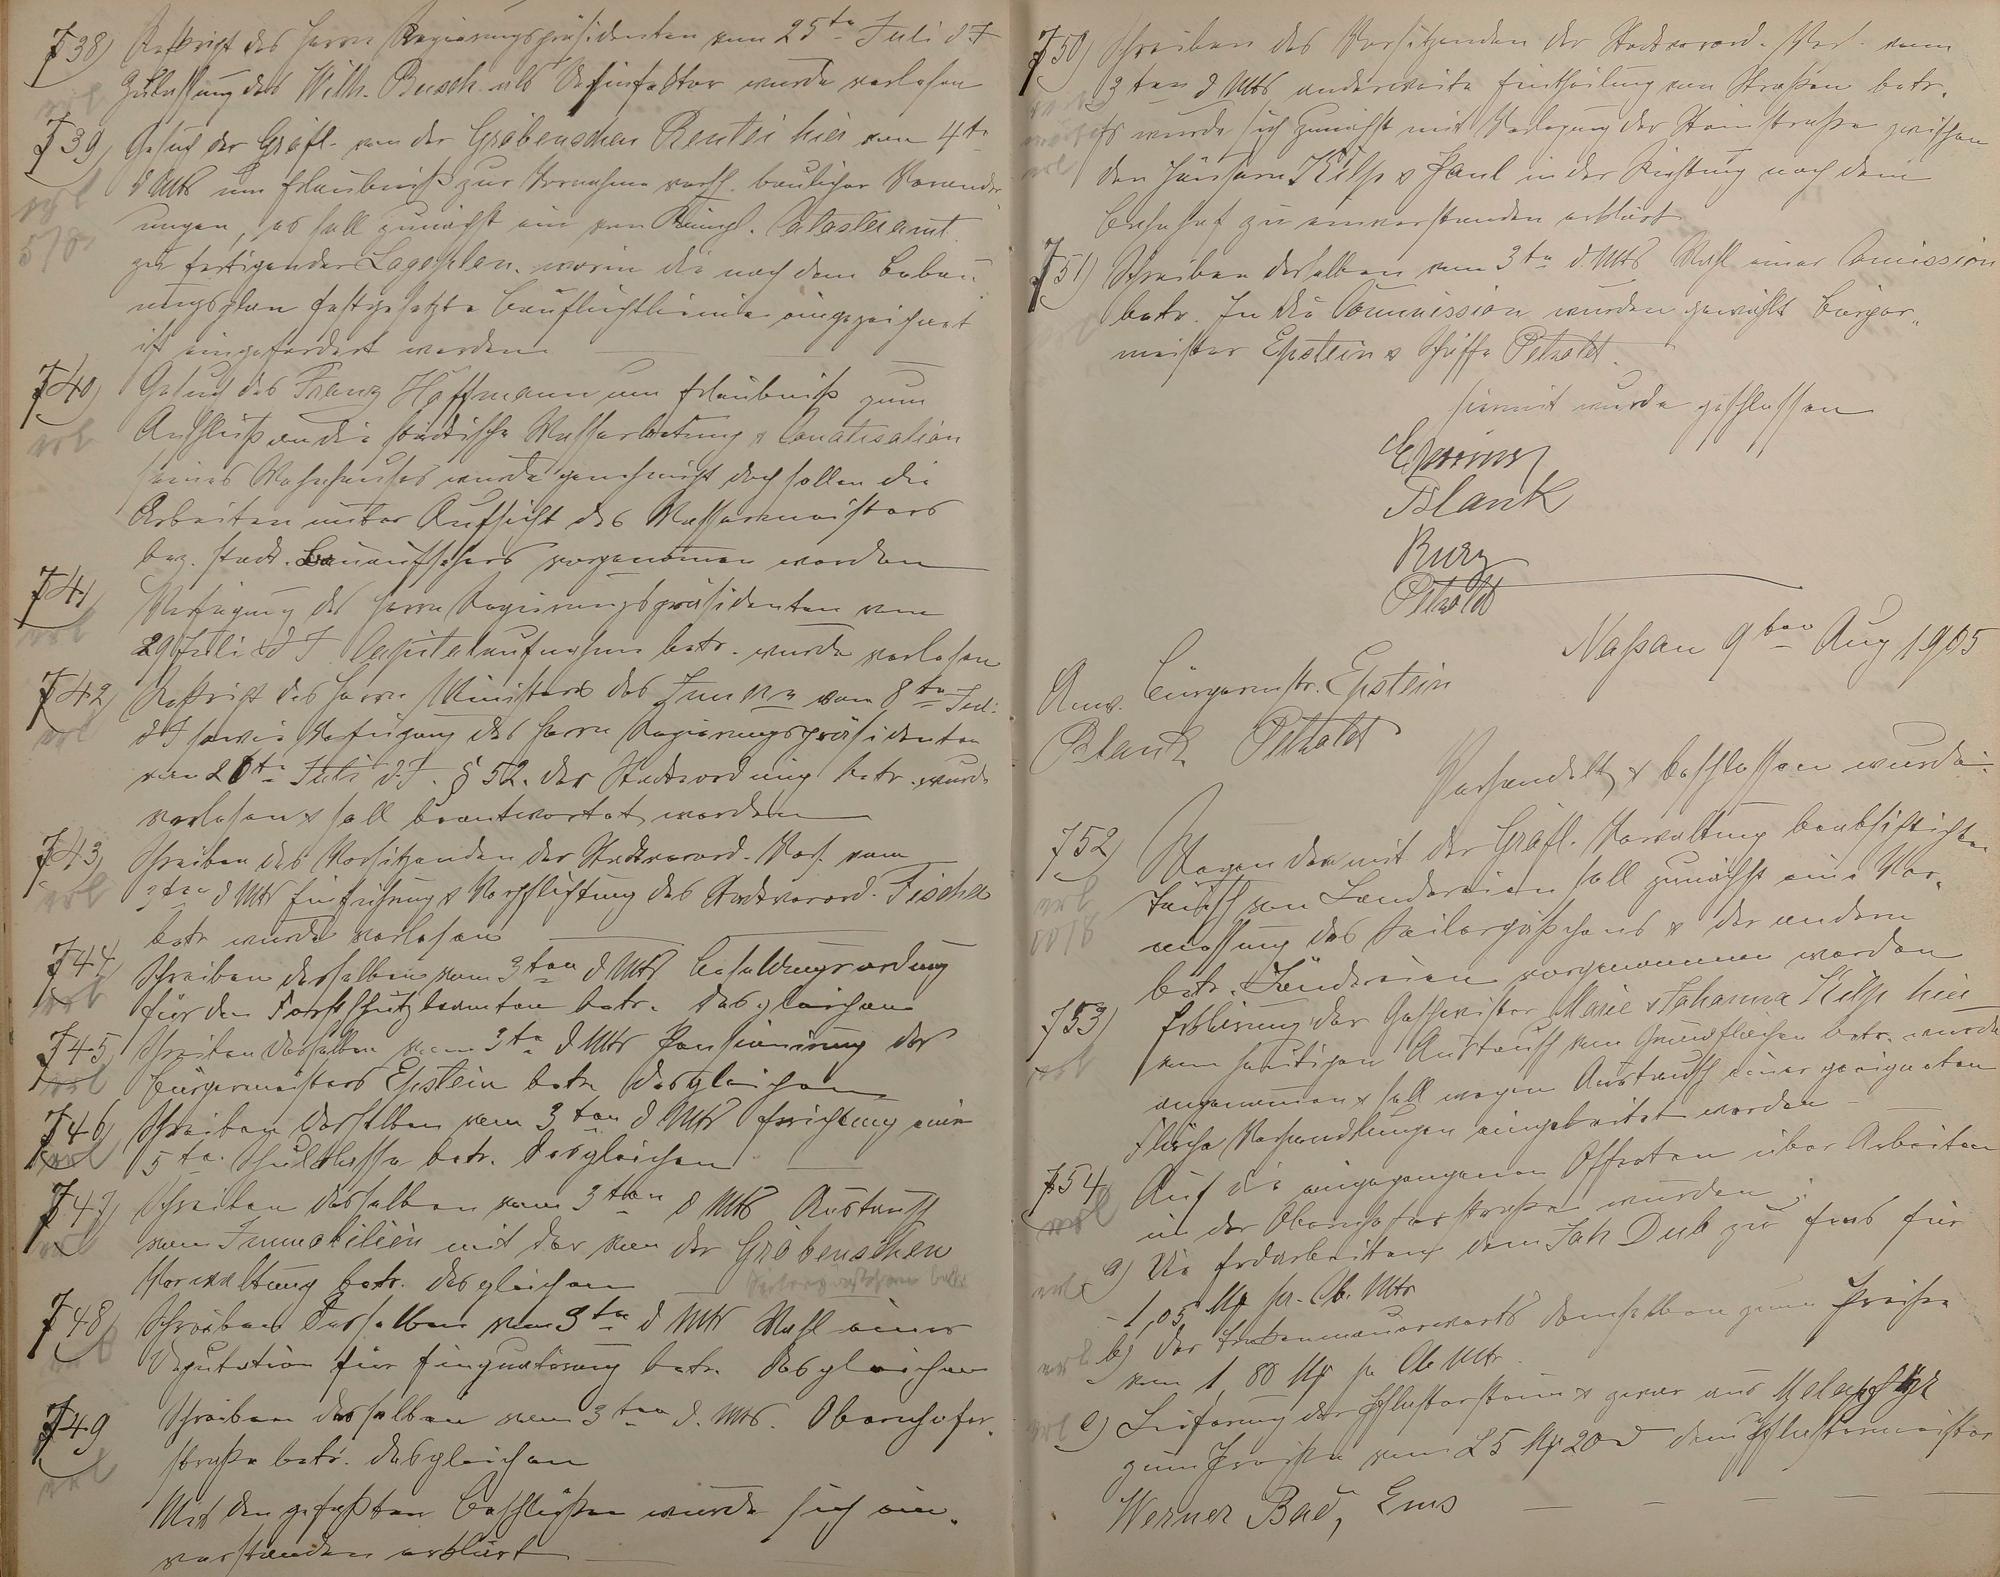 738) Reskript des Herrn Regierungspräsidenten vom 25ten Juli d J
Zulassung des Wilh. Busch als Desinfektor wurde verlesen
739) Gesuch der Gräfl. von der Gröbenschen Rentei hier vom 4ten
d Mts um Erlaubniß zur Vornahme baulicher Veränder
ungen, es soll zunächst ein vom Königl. Catasteramt
zu fertigender Lageplan, worin die nach dem Bebau
ungsplan festgesetzte Baufluchtlinie eingezeichnet
ist eingefordert werden
740) Gesuch des Franz Hoffmann um Erlaubniß zum
Anschluß an die städtische Wasserleitung & Canalisation
seines Wohnhauses wurde genehmigt doch sollen die
Arbeiten unter Aufsicht des Wassermeisters
bez. städt. Bauaufsehers vorgenommen werden
741) Verfügung des Herrn Regierungspräsidenten vom
29 Juli d J Capitalaufnahme betr. wurde verlesen
742) Reskript des Herrn Ministers des Innern vom 8ten Juli
d J sowie Verfügung des Herrn Regierungspräsidenten
vom 20ten Juli d. J. § 52. der Städteordnung betr. wurde
verlesen & soll beantwortet werden
743) Schreiben des Vorsitzenden der Stadtverord. Vers. vom
3ten d Mts Einführung & Verpflichtung des Stadtverord. Fischer
betr. wurde verlesen
744) Schreiben desselben vom 3ten d Mts Besoldungsordnung
für den Forstschutzbeamten betr. desgleichen
745) Schreiben desselben vom 3ten d Mts Pensionirung des
Bürgermeisters Epstein betr. desgleichen
746) Schreiben desselben vom 3ten d Mts Errichtung einer
5ten Schulklasse betr. desgleichen
747) Schreiben desselben vom 3ten d Mts Austausch
von Immobilien mit der von der Gröbenschen
Verwaltung betr. desgleichen
748) Schreiben desselben vom 3ten d Mts Wahl einer
Deputation für Einquartirung betr. desgleichen
749 Schreiben desselben vom 3ten d. Mts. Obernhofer-
straße betr. desgleichen
Mit den gefaßten Beschlüßen wurde sich ein-
verstanden erklärt
750) Schreiben des Vorsitzenden der Stadtverord. Vers. vom
3ten d Mts anderweite Eintheilung von Straßen betr.
Es wurde sich zunächst mit Verlegung der Steinstraße zwischen
den Häusern Kilp & Paul in der Richtung nach dem
Bahnhof zu einverstanden erklärt
751) Schreiben desselben vom 3ten d. Mts Wahl einer Comission
betr. In die Commission wurden gewählt Bürger-
meister Epstein & Schöffe Petzoldt.
Hiermit wurde geschlossen
Blank
Kurz
Petzoldt
Naßau 9ten Aug 1905
Anw. Bürgermstr. Epstein
Blank Petzoldt
Verhandelt & beschlossen wurde:
752) Wegen der mit der Gräfl. Verwaltung beabsichtigten
Tausch von Ländereien soll zunächst eine Ver-
messung des & der andern
betr. Ländereien vorgenommen werden
753) Erklärung der Geschwister Marie & Johanna Kilp hier
vom heutigen Austausch von Grundflächen betr. wurde
angenommen & soll wegen Austausch einer geeigneten
Fläche Verhandlungen eingeleitet werden
754) Auf die eingegangenen Offerten über Arbeiten
in der Obernhoferstraße wurden:
a) Die Erdarbeiten dem Joh Dub zu Ems für
1,05 Mk pr. Cb. Mtr
b) Des demselben zum Preise
von 1,80 Mk pr Mtr.
c) Lieferung der Pflastersteine & zwar aus
zum Preise von 25 Mk 20 dem Pflastermeister
Werner Bad, Ems